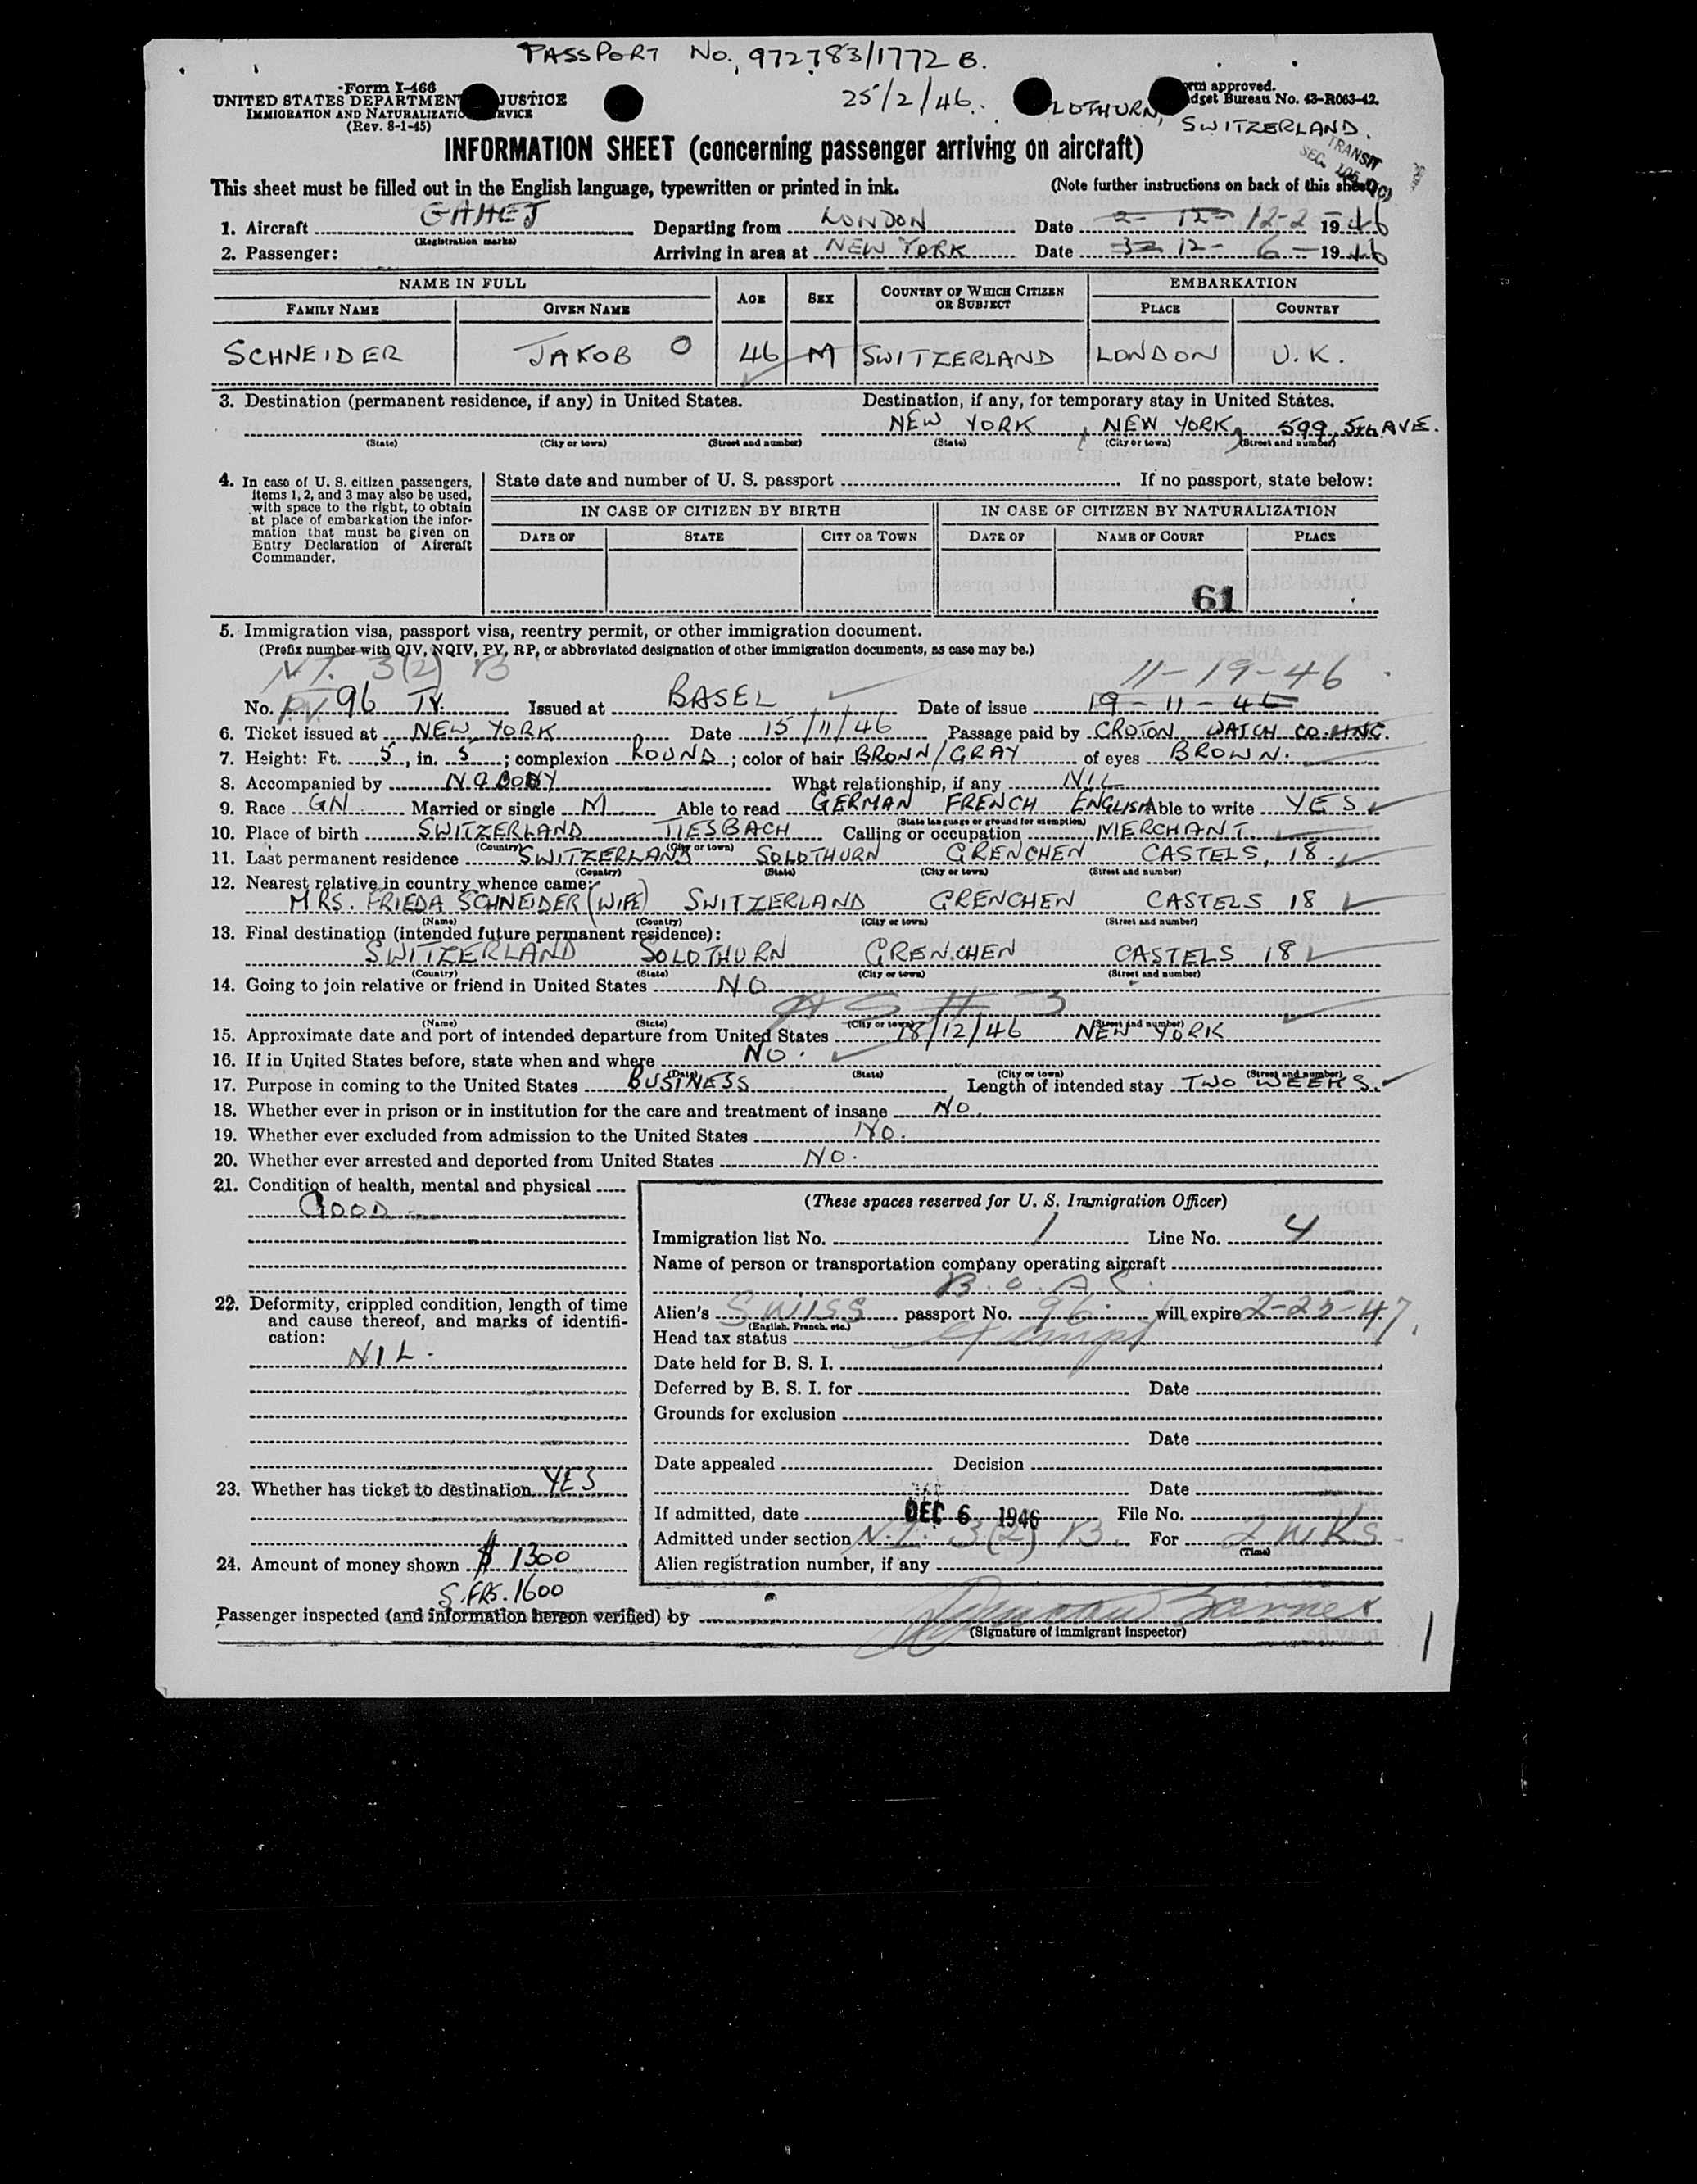 PASSPORT No., 972783/1772 B.
Form I-466
UNITED STATES DEPARTMENT JUSTICE
IMMIGRATION AND NATURALIZATIO RVICE
(Rev. 8-1-45)
25/2/46. LOTHURN, SWITZERLAND.
rm approved.
dget Bureau No. 43-R063-42.
INFORMATION SHEET (concerning passenger arriving on aircraft)
TRANSIT
This sheet must be filled out in the English language, typewritten or printed in ink. (Note further instructions on back of this sheet.)
1. Aircraft GAHEJ Departing from LONDON Date 2- 12- 12-2 1946
(Registration marks)
2. Passenger: Arriving in area at NEW YORK Date 12- 6- 1946
NAME IN FULL AGE SEX COUNTRY OF WHICH CITIZEN OR SUBJECT EMBARKATION
FAMILY NAME GIVEN NAME PLACE COUNTRY
SCHNEIDER JAKOB O 46 M SWITZERLAND LONDON U.K.
3. Destination (permanent residence, if any) in United States. Destination, if any, for temporary stay in United States.
NEW YORK, NEW YORK, 599, 5th AVE.
(State) (City or town) (Street and number) (State) (City or town) (Street and number)
4. In case of U. S. citizen passengers, items 1, 2, and 3 may also be used, with space to the right, to obtain at place of embarkation the information that must be given on Entry Declaration of Aircraft Commander.
State date and number of U. S. passport If no passport, state below:
IN CASE OF CITIZEN BY BIRTH IN CASE OF CITIZEN BY NATURALIZATION
DATE OF STATE CITY OR TOWN DATE OF NAME OF COURT PLACE
61
5. Immigration visa, passport visa, reentry permit, or other immigration document.
(Prefix number with QIV, NQIV, PV, RP, or abbreviated designation of other immigration documents, as case may be.)
N.I. 3(2) B 11-19-46
No. P.V. 96 TV. Issued at BASEL Date of issue 19-11-46
6. Ticket issued at NEW YORK Date 15/11/46 Passage paid by CROTON WATCH CO. INC.
7. Height: Ft. 5, in. 5; complexion ROUND; color of hair BROWN/GRAY of eyes BROWN.
8. Accompanied by NOBODY What relationship, if any NIL
9. Race GN Married or single M Able to read GERMAN FRENCH ENGLISH Able to write YES
(State language or ground for exemption)
10. Place of birth SWITZERLAND TIESBACH Calling or occupation MERCHANT
(Country) (City or town)
11. Last permanent residence SWITZERLAND SOLOTHURN GRENCHEN CASTELS, 18.
(Country) (State) (City or town) (Street and number)
12. Nearest relative in country whence came:
MRS. FRIEDA SCHNEIDER (WIFE) SWITZERLAND GRENCHEN CASTELS 18
(Name) (Country) (City or town) (Street and number)
13. Final destination (intended future permanent residence):
SWITZERLAND SOLOTHURN GRENCHEN CASTELS 18
(Country) (State) (City or town) (Street and number)
14. Going to join relative or friend in United States NO
(Name) (State) (City or town) (Street and number)
15. Approximate date and port of intended departure from United States 18/12/46 NEW YORK
16. If in United States before, state when and where NO.
(Date) (State) (City or town) (Street and number)
17. Purpose in coming to the United States BUSINESS Length of intended stay TWO WEEKS.
18. Whether ever in prison or in institution for the care and treatment of insane NO.
19. Whether ever excluded from admission to the United States NO.
20. Whether ever arrested and deported from United States NO.
21. Condition of health, mental and physical
GOOD
22. Deformity, crippled condition, length of time and cause thereof, and marks of identification:
NIL.
23. Whether has ticket to destination YES
24. Amount of money shown $ 1300
S.FRS. 1600
(These spaces reserved for U. S. Immigration Officer)
Immigration list No. 1 Line No. 4
Name of person or transportation company operating aircraft
B.O.A.C.
Alien's SWISS passport No. 96. will expire 2-25-47.
(English, French, etc.)
Head tax status exempt
Date held for B. S. I.
Deferred by B. S. I. for Date
Grounds for exclusion
Date
Date appealed Decision
Date
If admitted, date DEC 6 1946 File No.
Admitted under section N.I. 3(2) B. For 2 WKS
(Time)
Alien registration number, if any
Passenger inspected (and information hereon verified) by
(Signature of immigrant inspector)